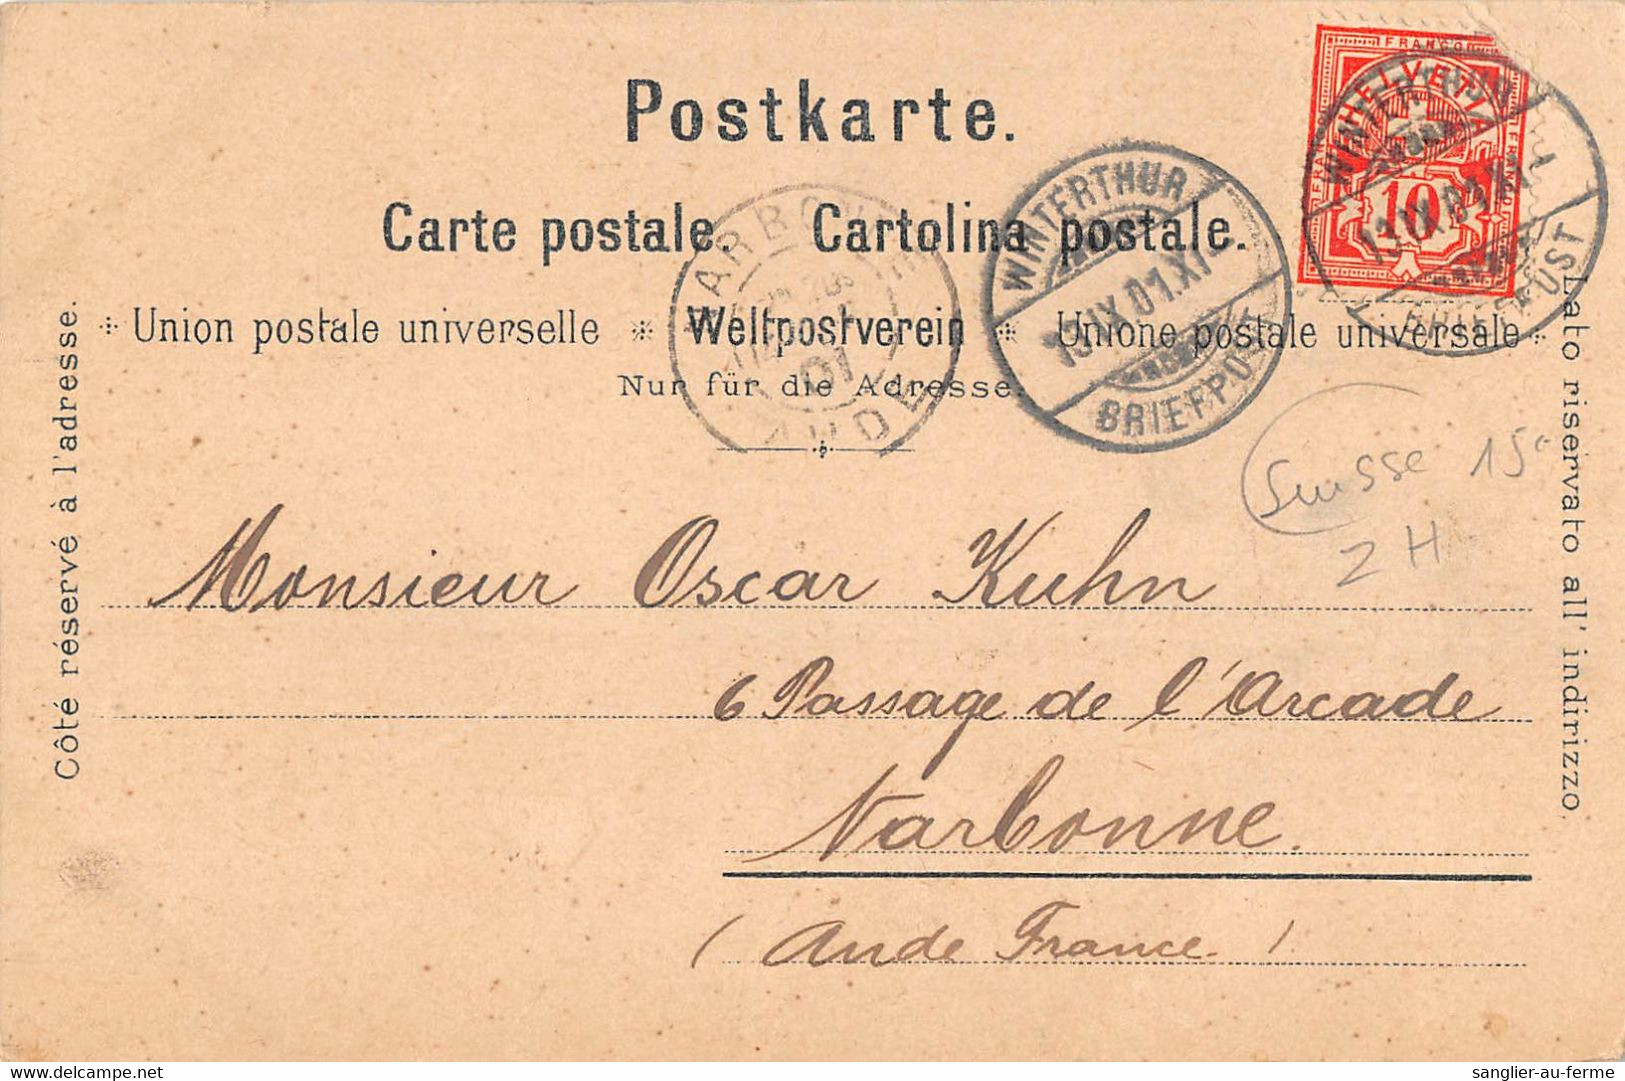 Postkarte.
Carte postale. Cartolina postale.
Union postale universelle Weltpostverein Unione postale universale
Nur für die Adresse.
Côté réservé à l'adresse.
Lato riservato all' indirizzo.
FRANCO
HELVETIA
FRANCO
FRANCO
10
WINTERTHUR
BRIEFPOST
WINTERTHUR
13.IX.01.XI
BRIEFPOST
NARBONNE
01
AUDE
Suisse 15e
2 H
Monsieur Oscar Kuhn
6 Passage de l'Arcade
Narbonne.
(Aude France.)
sanglier-au-ferme